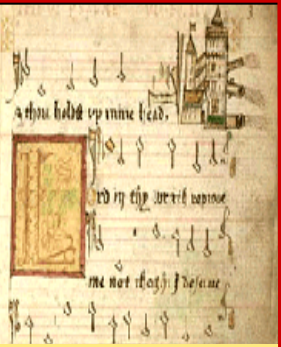 thou holdst up mine head.
rd in thy wrath reprove
me not though I deserve